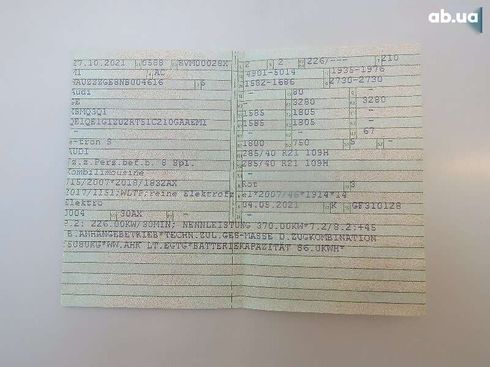 ab.ua
27.10.2021 0588 BVM00028X
M1 AC
WAUZZZGE8NB004616 6
Audi
GE
e-tron S
AUDI
Fz.z.Pers.bef.b. 8 Spl.
Kombilimousine
715/2007*2018/1832AX
2017/1151;WLTP;reine Elektrofz
Elektro
0004 30AX
P.2: 226.00KW/30MIN; NENNLEISTUNG 370.00KW*7.2/8.2:+45
B.ANHANGEBETRIEB*TECHN.ZUL.GES-MASSE D.ZUGKOMBINATION
5080KG*WW.AHK LT.EGTG*BATTERIEKAPAZITÄT 86.0KWH*
2 2 226/--- 210
4901-5014 1935-1976
1582-1686 2730-2730
- 80 -
- 3280 3280
1585 1805 -
1585 1805 -
- - 67
1800 750 5 -
285/40 R21 109H
285/40 R21 109H
-
Rot 3
e1*2007/46*1914*14
04.05.2021 K GF310128